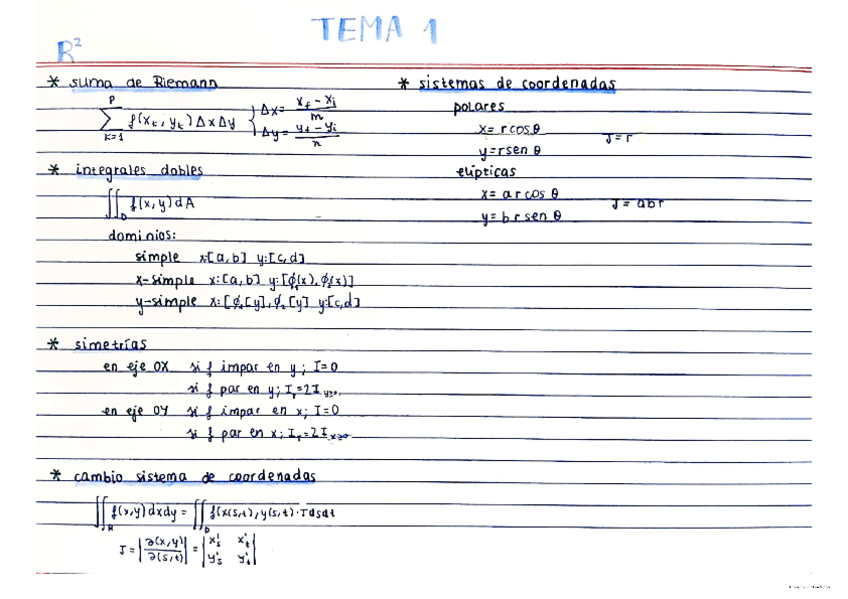 TEMA 1
R²
* suma de Riemann
P
∑ f(xₖ, yₖ) Δx Δy { Δx = (x_f - x_i)/m
k=1 Δy = (y_f - y_i)/n
* integrales dobles
∬_D f(x,y) dA
dominios:
simple x:[a,b] y:[c,d]
x-simple x:[a,b] y:[ϕ₁(x), ϕ₂(x)]
y-simple x:[ϕ₁[y], ϕ₂[y] y:[c,d]
* simetrías
en eje OX si f impar en y; I=0
si f par en y; I_T=2I_y≥0.
en eje OY si f impar en x; I=0
si f par en x; I_T=2I_x≥0
* cambio sistema de coordenadas
∬_A f(x,y) dxdy = ∬_D f(x(s,t), y(s,t)) · J ds dt
J = |∂(x,y)/∂(s,t)| = |x'_s x'_t|
|y'_s y'_t|
* sistemas de coordenadas
polares
x= r cos θ
J=r
y=rsen θ
elípticas
x= a r cos θ
J= abr
y= b r sen θ